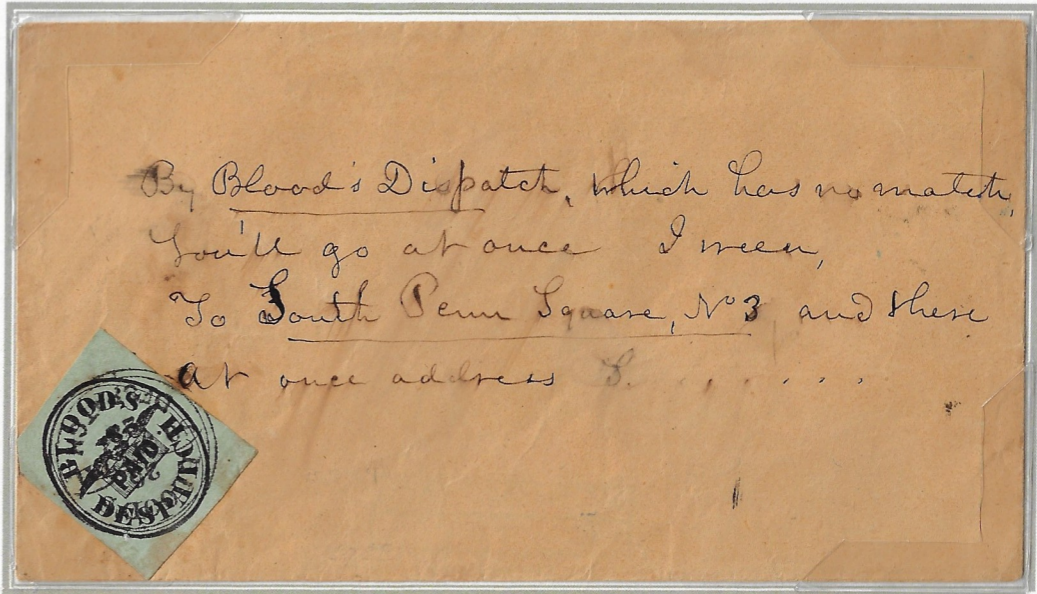 By Blood's Dispatch, which has no match,
You'll go at once I ween,
To South Penn Square, No 3, and there
At once address S. . . . . . .
BLOOD'S
PAID
DESPATCH